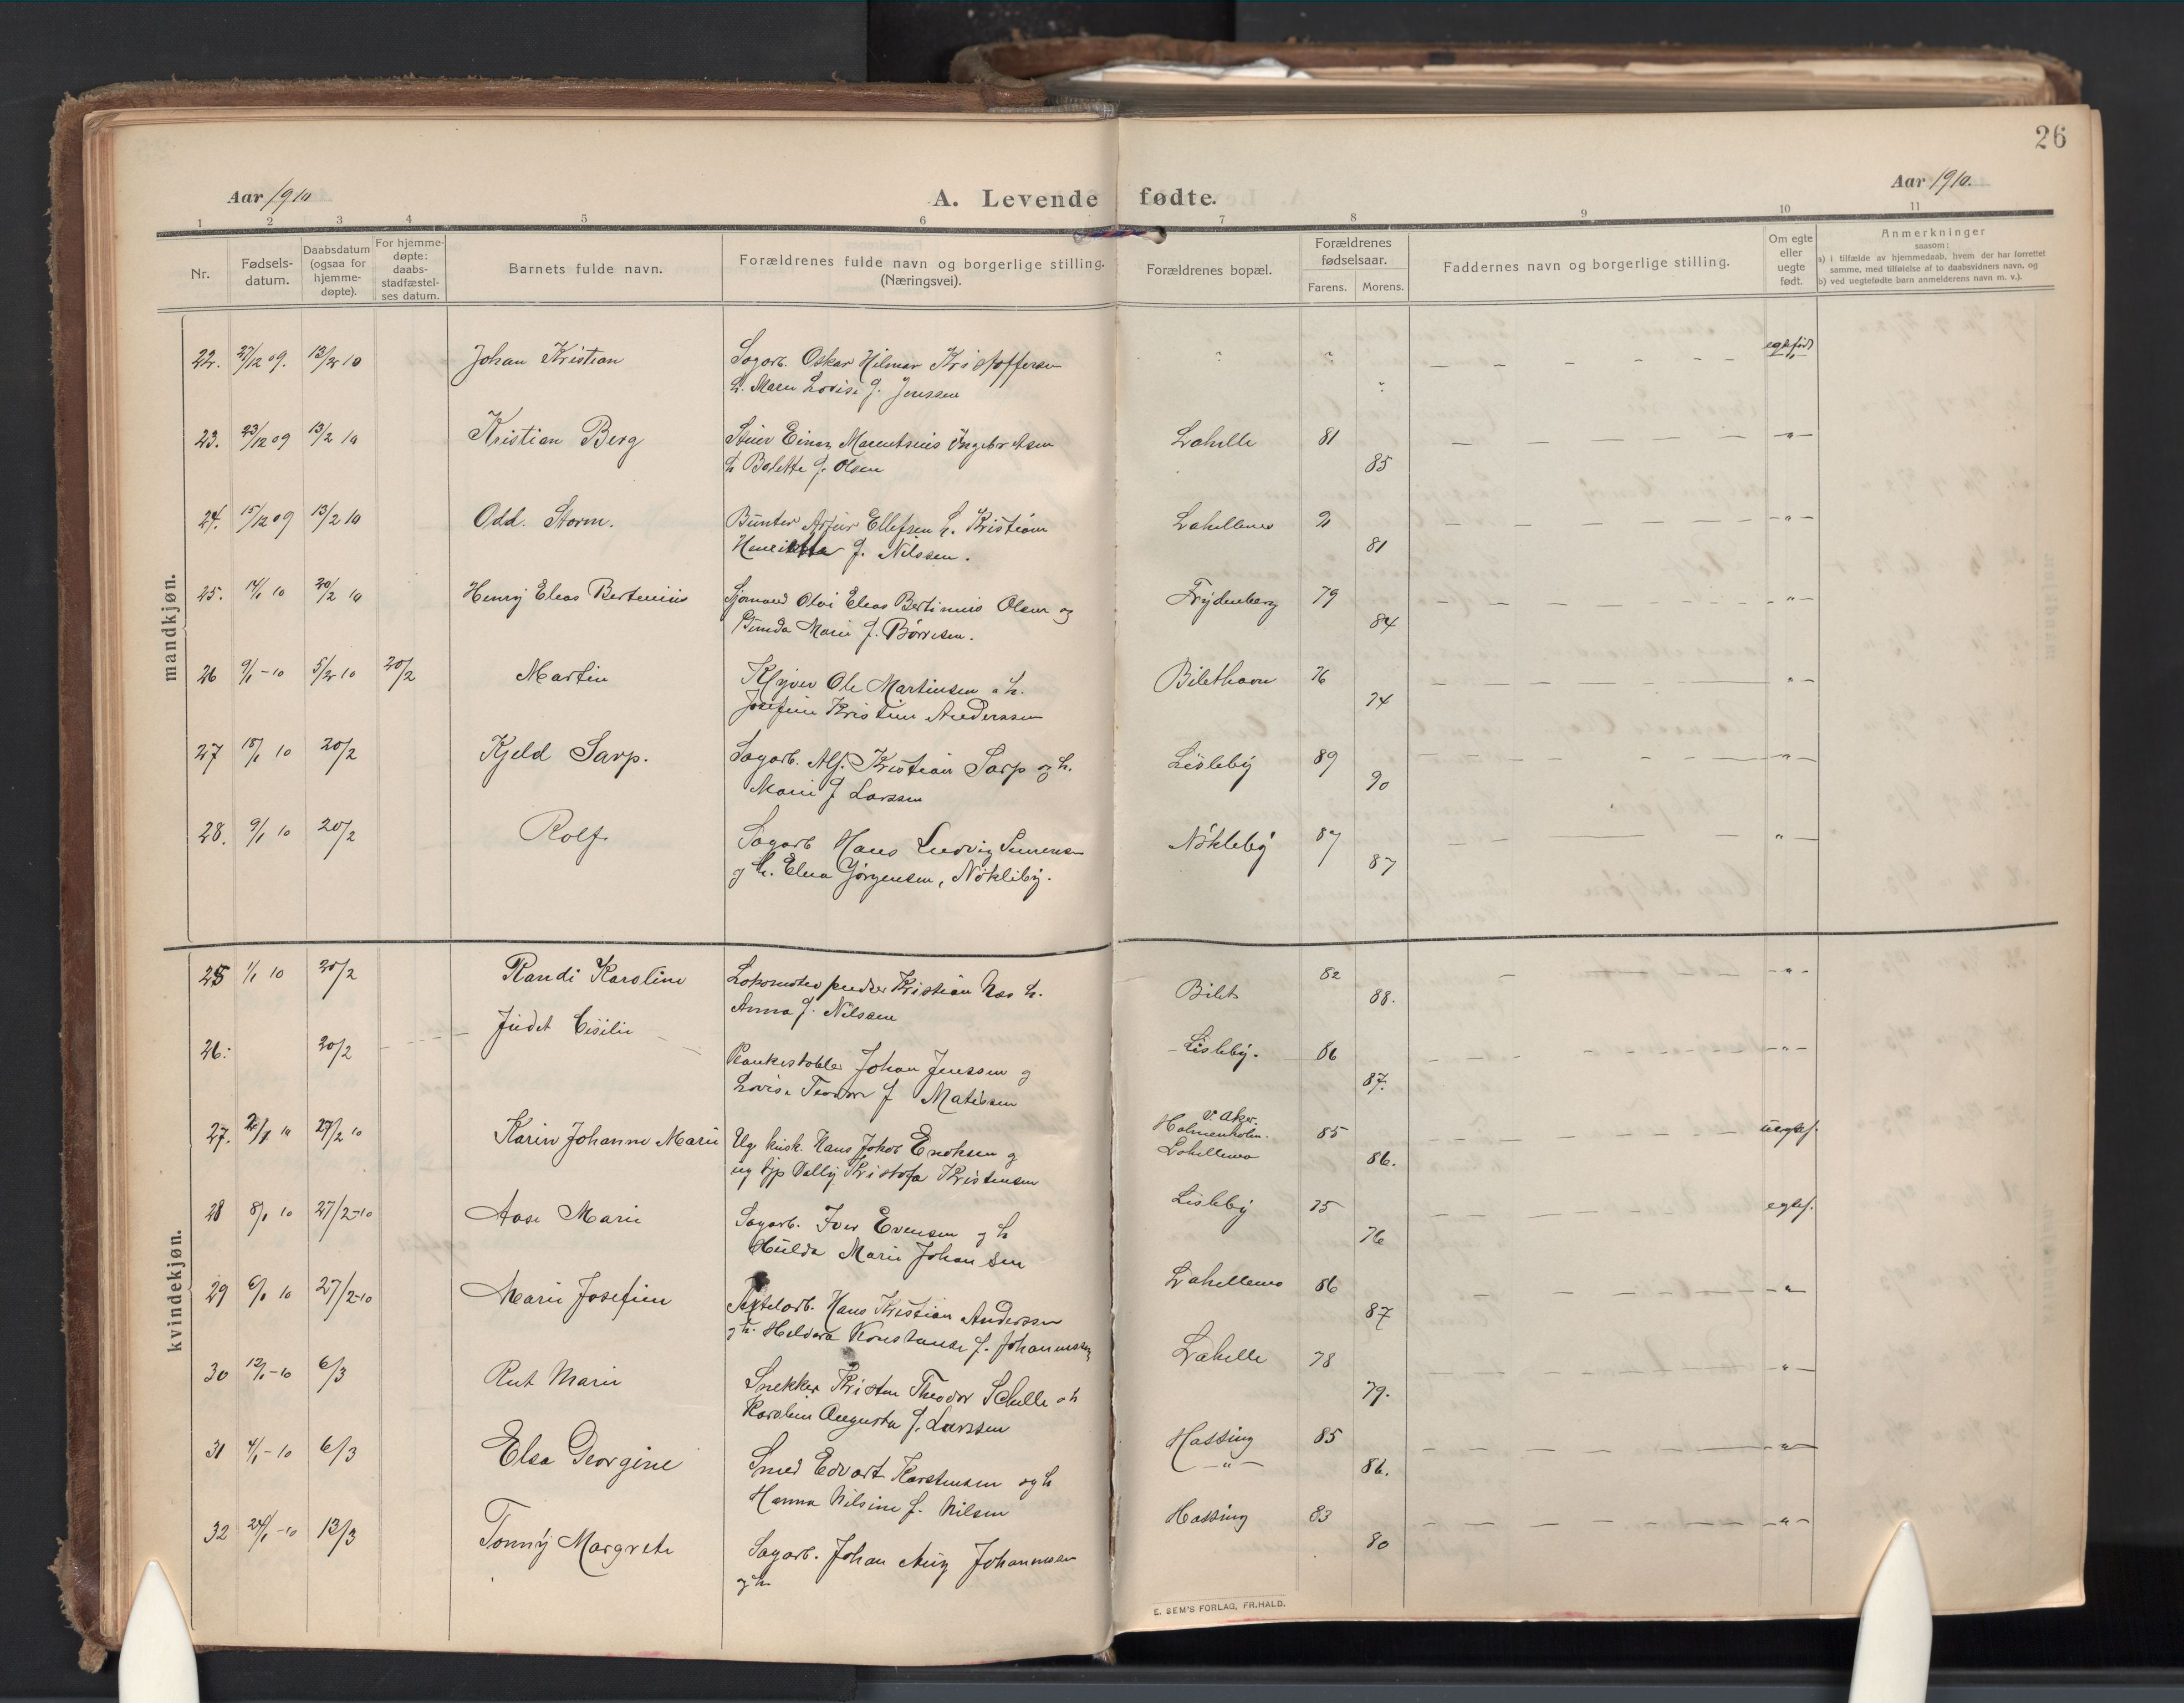 26
Aar 1910
A. Levende fødte.
Aar 1910.
1 2 3 4 5 6 7 8 9 10 11
Nr.
Fødsels-
datum.
Daabsdatum
(ogsaa for
hjemme-
døpte).
For hjemme-
døpte:
daabs-
stadfæstel-
ses datum.
Barnets fulde navn.
Forældrenes fulde navn og borgerlige stilling.
(Næringsvei).
Forældrenes bopæl.
Forældrenes
fødselsaar.
Farens. Morens.
Faddernes navn og borgerlige stilling.
Om egte
eller
uegte
født.
Anmerkninger
saasom:
a) i tilfælde av hjemmedaab, hvem der har forrettet
samme, med tilføielse af to daabsvidners navn, og
b) ved uegtefødte barn anmelderens navn m. v.).
mandkjøn.
22. 27/12 09. 13/2 10 Johan Kristian Sagarb. Oskar Hilmar Kristoffersen " " — — — — — egtefødt
h. Maren Lovise f. Jenssen "
23. 23/12 09 13/2 10 Kristian Berg Einar Ingebretsen Lahelle 81 — — — — — — " —
h Bolette f. Olsen 85
24. 15/12 09 13/2 10 Odd. Storm. Artur Ellefsen h. Kristiane Lahellemo — — — — — " —
Henriette f. Nilssen. 81
25. 14/1 10 20/2 10 Henry Elias Bertinius Sjømand Olai Elias Bertinius Olsen og Frydenberg 79 — — — — — " —
Marie f. Børresen. 84
26 9/1 - 10 5/2 10 20/2 Martin Ole Martinsen o h. Bilethavn 76 — — — — " —
Josefine Kristine Anderssen 74
27 18/1 10 20/2 Kjeld Sarp. Sagarb. Alf. Kristian Sarp og h. Lisleby 89 — — — — — " —
Marie f Larssen 90
28. 9/1 10 20/2 Rolf. Sagarb Hans Ludvig Nökleby 87 — — — — " —
og h. Elna Jörgensen, Nökleby. 87
kvindekjøn.
25 1/1 10 20/2 Randi Karoline Lokomotivpudser Kristian Næs h. Bilet 82 — — " —
Anna f. Nilssen 88.
26. 20/2 Judet Cisilie Plankestabler Johan Jenssen og Lisleby. 86 — — — — — " —
Lovise f Matissen 87.
27. 27/2 10 Karin Johanne Marie Ug kusk. Hans Jakob Eriksen og V. Aker. 85 — — — — uegtef.
ug tjp Valby Kristofa Kristensen Holmenkolm. Lahellemo 86.
28 8/1 10 27/2-10 Aase Marie Sagarb. Iver Evensen og h Lisleby 75 — — — — egtef.
Hulda Marie Johansen 76
29 6/1 10 27/2-10 Marie Josefine Hans Kristian Anderssen Lahellemo 86 — — — — " —
og h. Konstanse f. Johannessen 87
30 12/1-10 6/3 Rut Marie Snekker Kristen Theodor Schulle o h Lahelle 78 — — — — " —
Karoline Augusta f. Larssen 79.
31 4/1-10 6/3 Elsa Georgine Smed Edvart Karstensen og h Hassing 85 — — — — " —
Hanna Nilsine f. Nilsen — " — 86.
32 24/1-10 13/3 Tonny Margrete Sagarb. Johan Aug Johannessen Hassing 83 — — — — — " —
og h. 80
E. SEM'S FORLAG, FR.HALD.